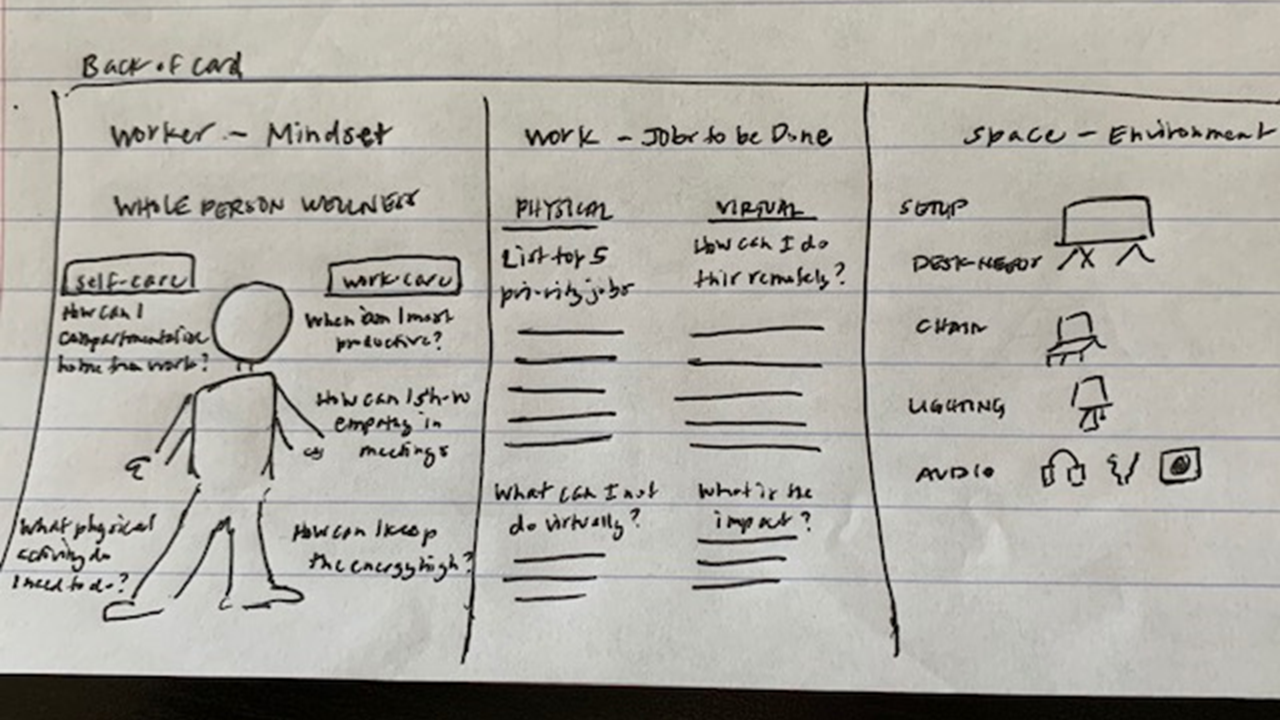 Back of Card
Worker - Mindset
WHOLE PERSON WELLNESS
self-care
How can I
compartmentalize
home from work?
work-care
When am I most
productive?
How can I show
empathy in
meetings
What physical
activity do
I need to do?
How can I keep
the energy high?
Work - Jobs to be Done
PHYSICAL
List top 5
priority jobs
VIRTUAL
How can I do
this remotely?
What can I not
do virtually?
What is the
impact?
Space - Environment
SETUP
DESK NEEDS
CHAIR
LIGHTING
AUDIO